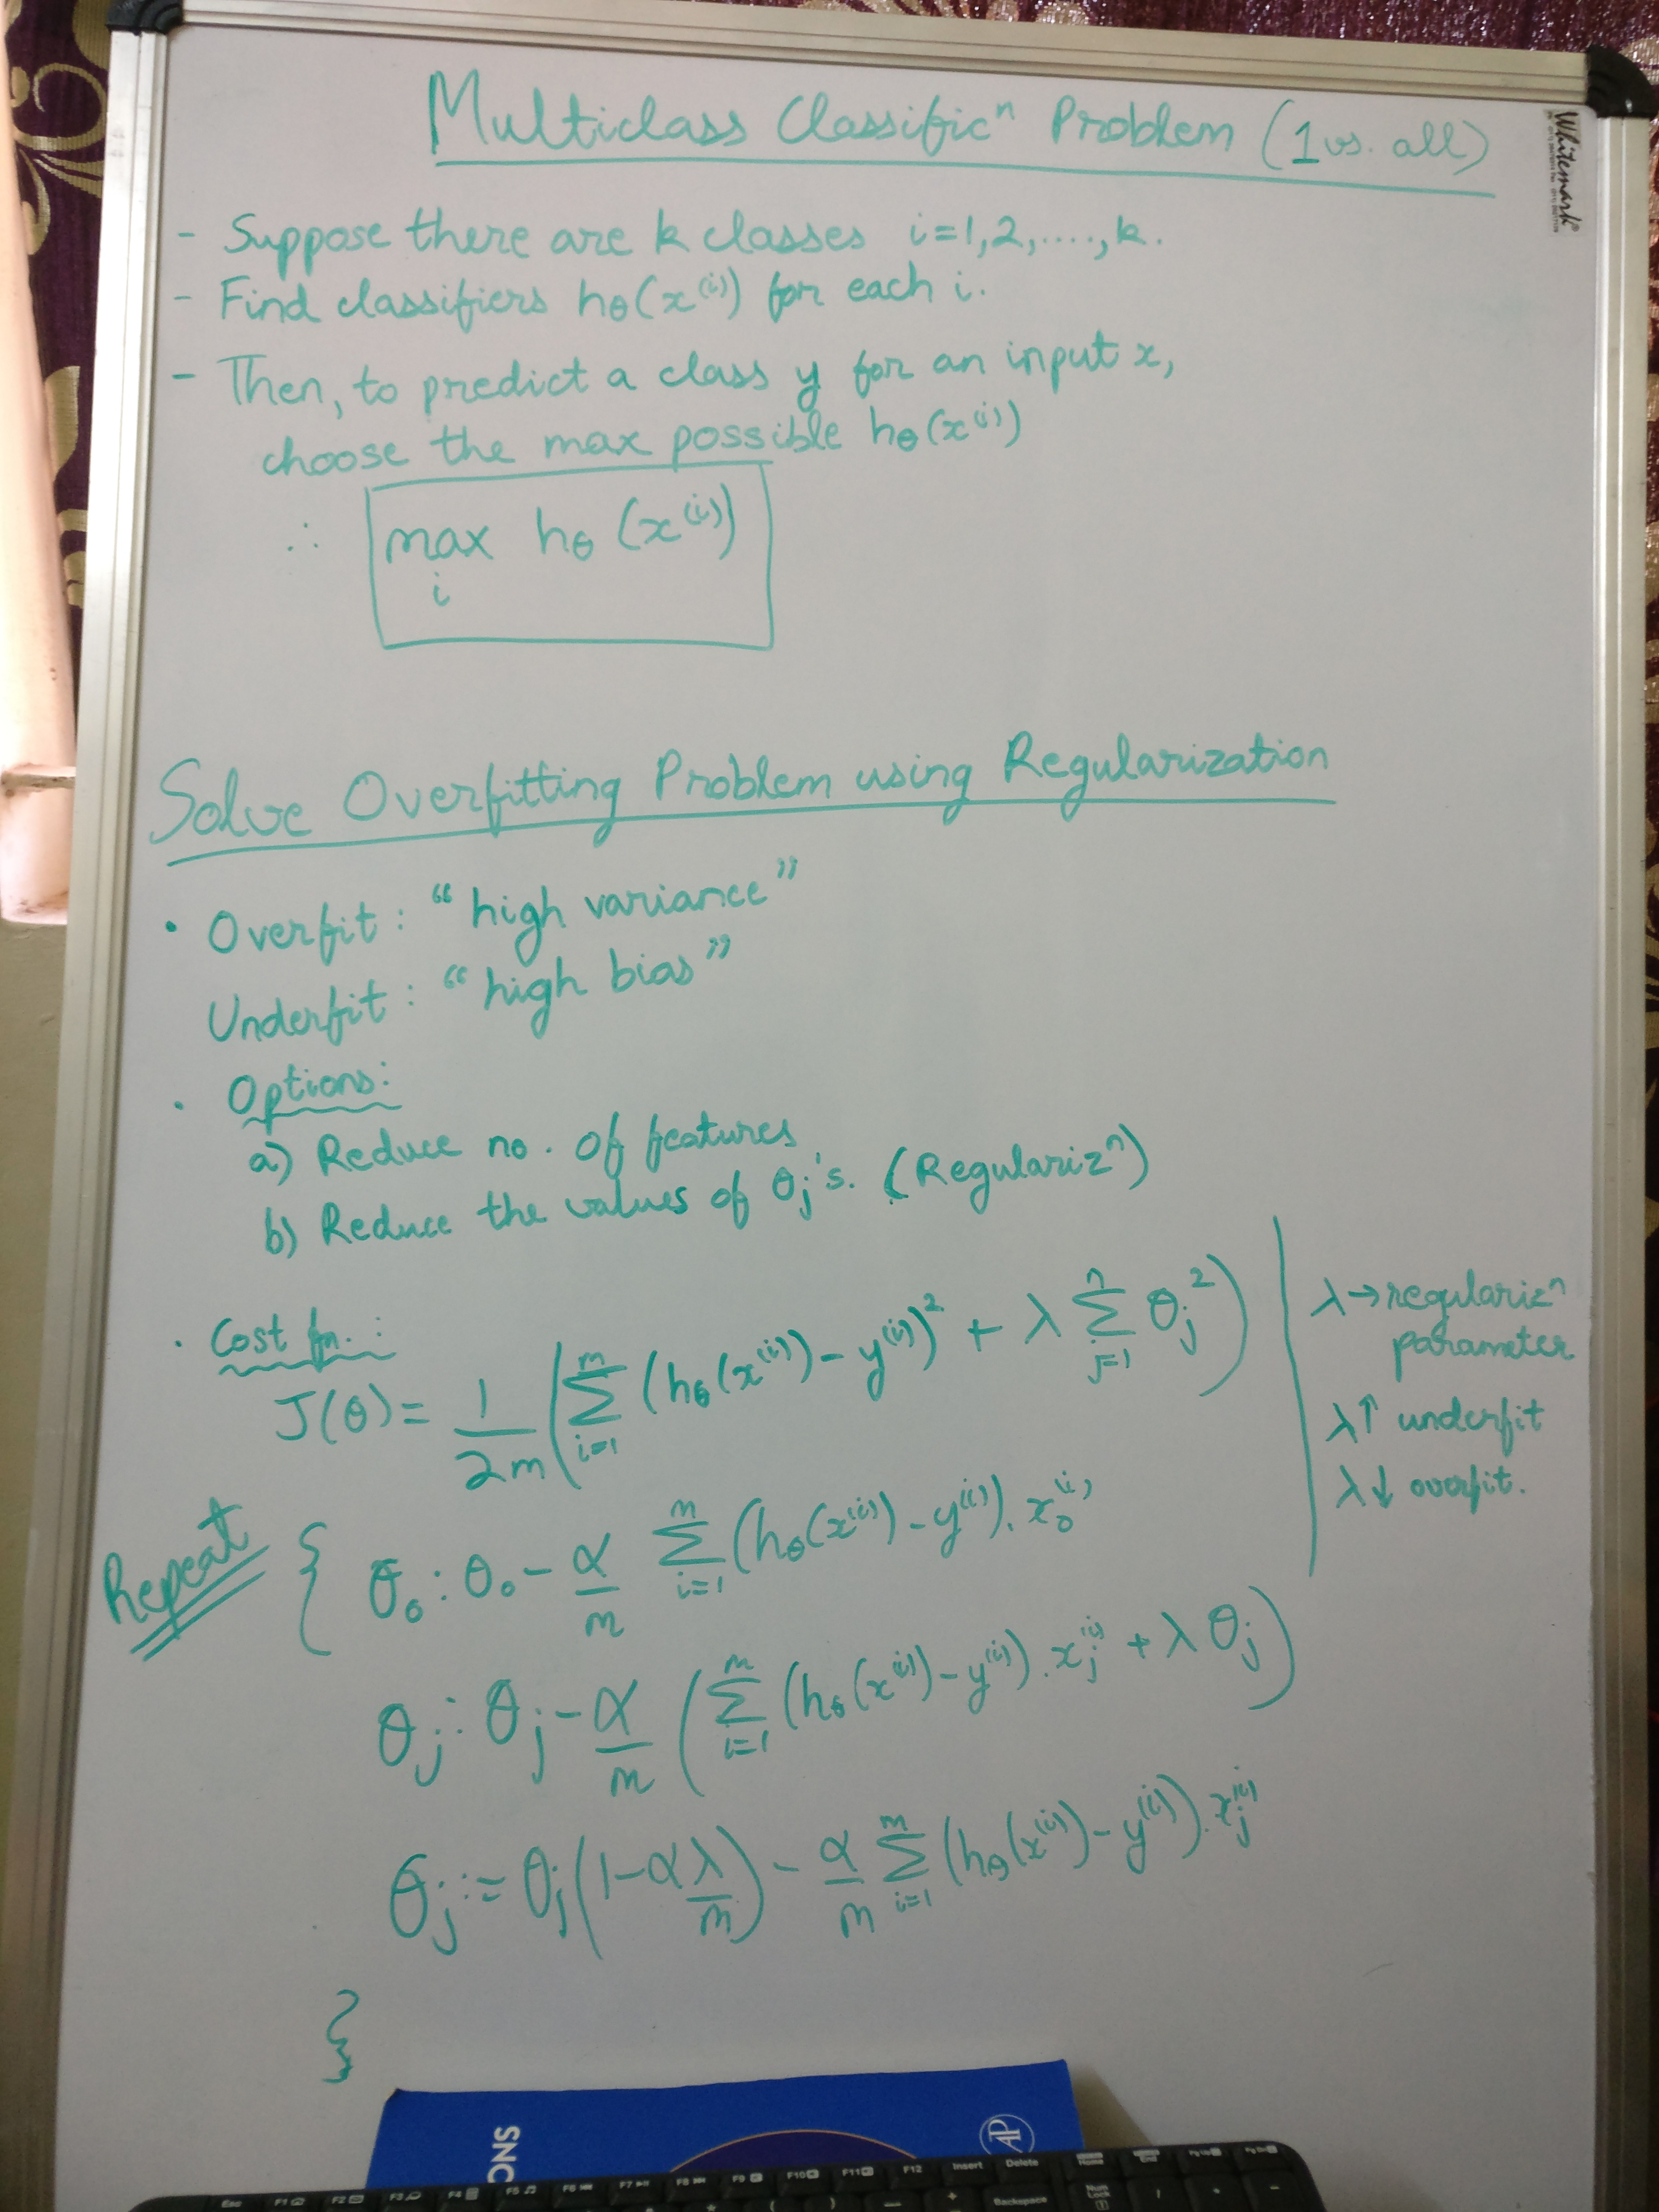 Multiclass Classificⁿ Problem (1 vs. all)
Whitemark
- Suppose there are k classes i=1,2,....,k.
- Find classifiers hθ(x⁽ⁱ⁾) for each i.
- Then, to predict a class y for an input x,
choose the max possible hθ(x⁽ⁱ⁾)
∴ max hθ(x⁽ⁱ⁾)
i
Solve Overfitting Problem using Regularization
• Overfit: “high variance”
Underfit: “high bias”
• Options:
a) Reduce no. of features
b) Reduce the values of θj's. (Regularizⁿ)
• Cost fn.:
J(θ) = 1/2m (Σ_{i=1}^{m} (hθ(x⁽ⁱ⁾) - y⁽ⁱ⁾)² + λ Σ_{j=1}^{n} θj²)
λ→regularizⁿ
parameter
λ↑ underfit
λ↓ overfit.
Repeat { θ₀ : θ₀ - α/m Σ_{i=1}^{m} (hθ(x⁽ⁱ⁾) - y⁽ⁱ⁾). x₀⁽ⁱ⁾
θj : θj - α/m (Σ_{i=1}^{m} (hθ(x⁽ⁱ⁾) - y⁽ⁱ⁾). xj⁽ⁱ⁾ + λ θj)
θj := θj(1 - αλ/m) - α/m Σ_{i=1}^{m} (hθ(x⁽ⁱ⁾) - y⁽ⁱ⁾). xj⁽ⁱ⁾
}
ONS
AP
Esc F1 F2 F3 F4 F5 F6 F7 F8 F9 F10 F11 F12 Insert Delete Home End Pg Up Pg Dn
Backspace Num Lock